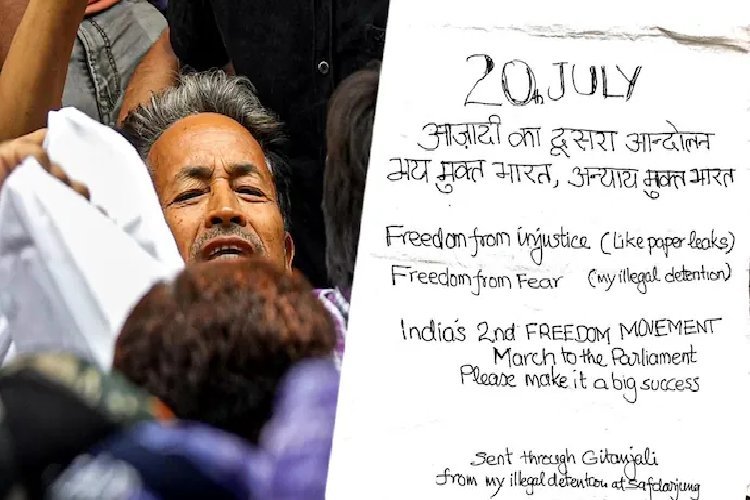 20th JULY
आज़ादी का दूसरा आन्दोलन
भय मुक्त भारत, अन्याय मुक्त भारत
Freedom from injustice (Like paper leaks)
Freedom from Fear (my illegal detention)
India's 2nd FREEDOM MOVEMENT
March to the Parliament
Please make it a big success
Sent through Gitanjali
from my illegal detention at Safdarjung